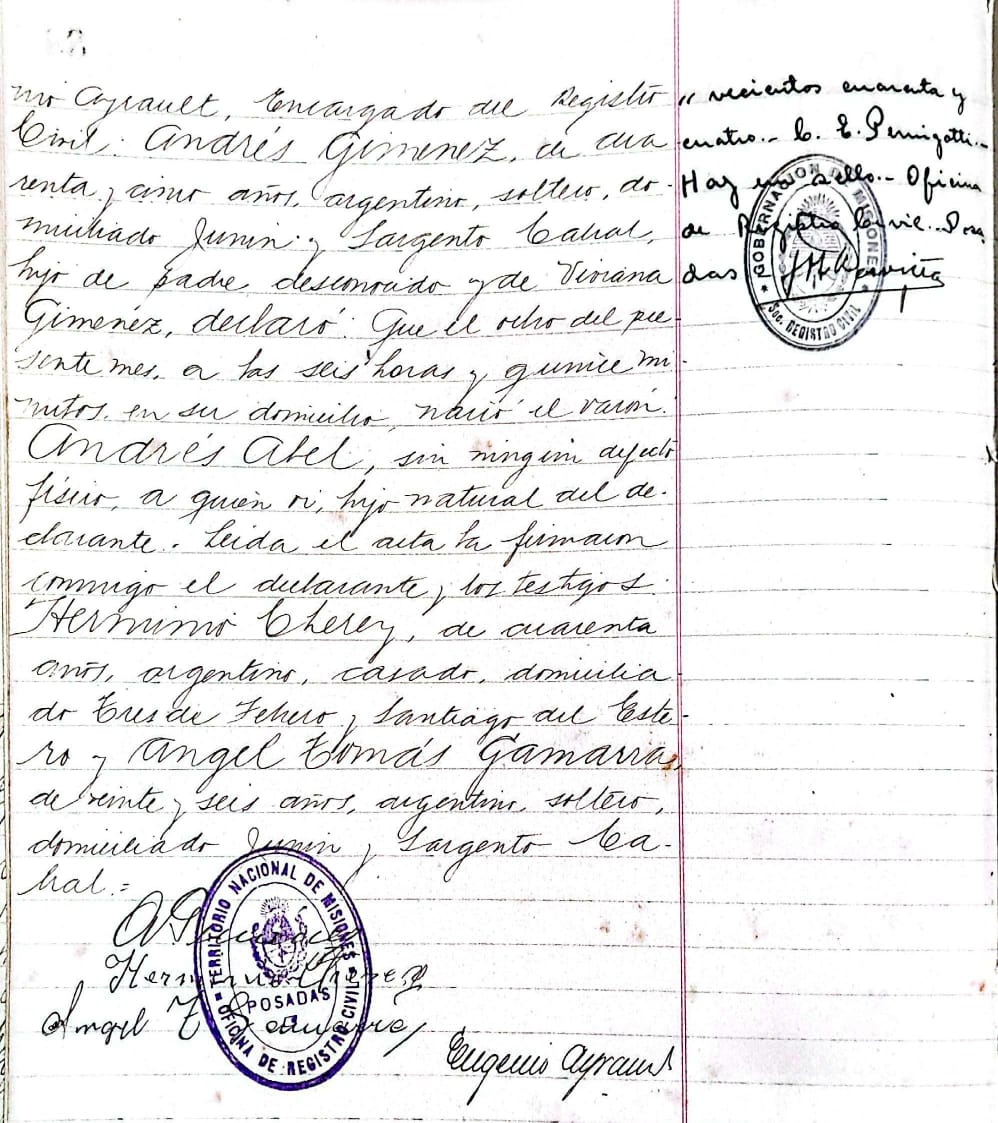 nio Ayrault, Encargado del Registro
Civil: Andrés Gimenez, de cua
renta y cinco años, argentino, soltero, do-
miciliado Junin y Sargento Cabral,
hijo de padre desconocido y de Viviana
Gimenez, declaró: Que el ocho del pre-
sente mes, a las seis horas y quince mi-
nutos, en su domicilio, nació el varón:
Andrés Abel, sin ningún defecto
físico, a quien vi, hijo natural del de-
clarante. Leida el acta la firmaron
conmigo el declarante y los testigos:
Herminio Cherey, de cuarenta
años, argentino, casado, domicilia
do Tres de Febrero y Santiago del Este-
ro y Angel Tomás Gamarra,
de veinte y seis años, argentino, soltero,
domiciliado Junin y Sargento Ca-
bral.=
Angel T Gamarra
Eugenio Ayrault
TERRITORIO NACIONAL DE MISIONES
POSADAS
OFICINA DE REGISTRO CIVIL
" vecientos cuarenta y
cuatro.- C. E. Pernigotti.-
Hay un sello.- Oficina
de Registro Civil.- Posa
das
GOBERNACION DE MISIONES
Sec. REGISTRO CIVIL